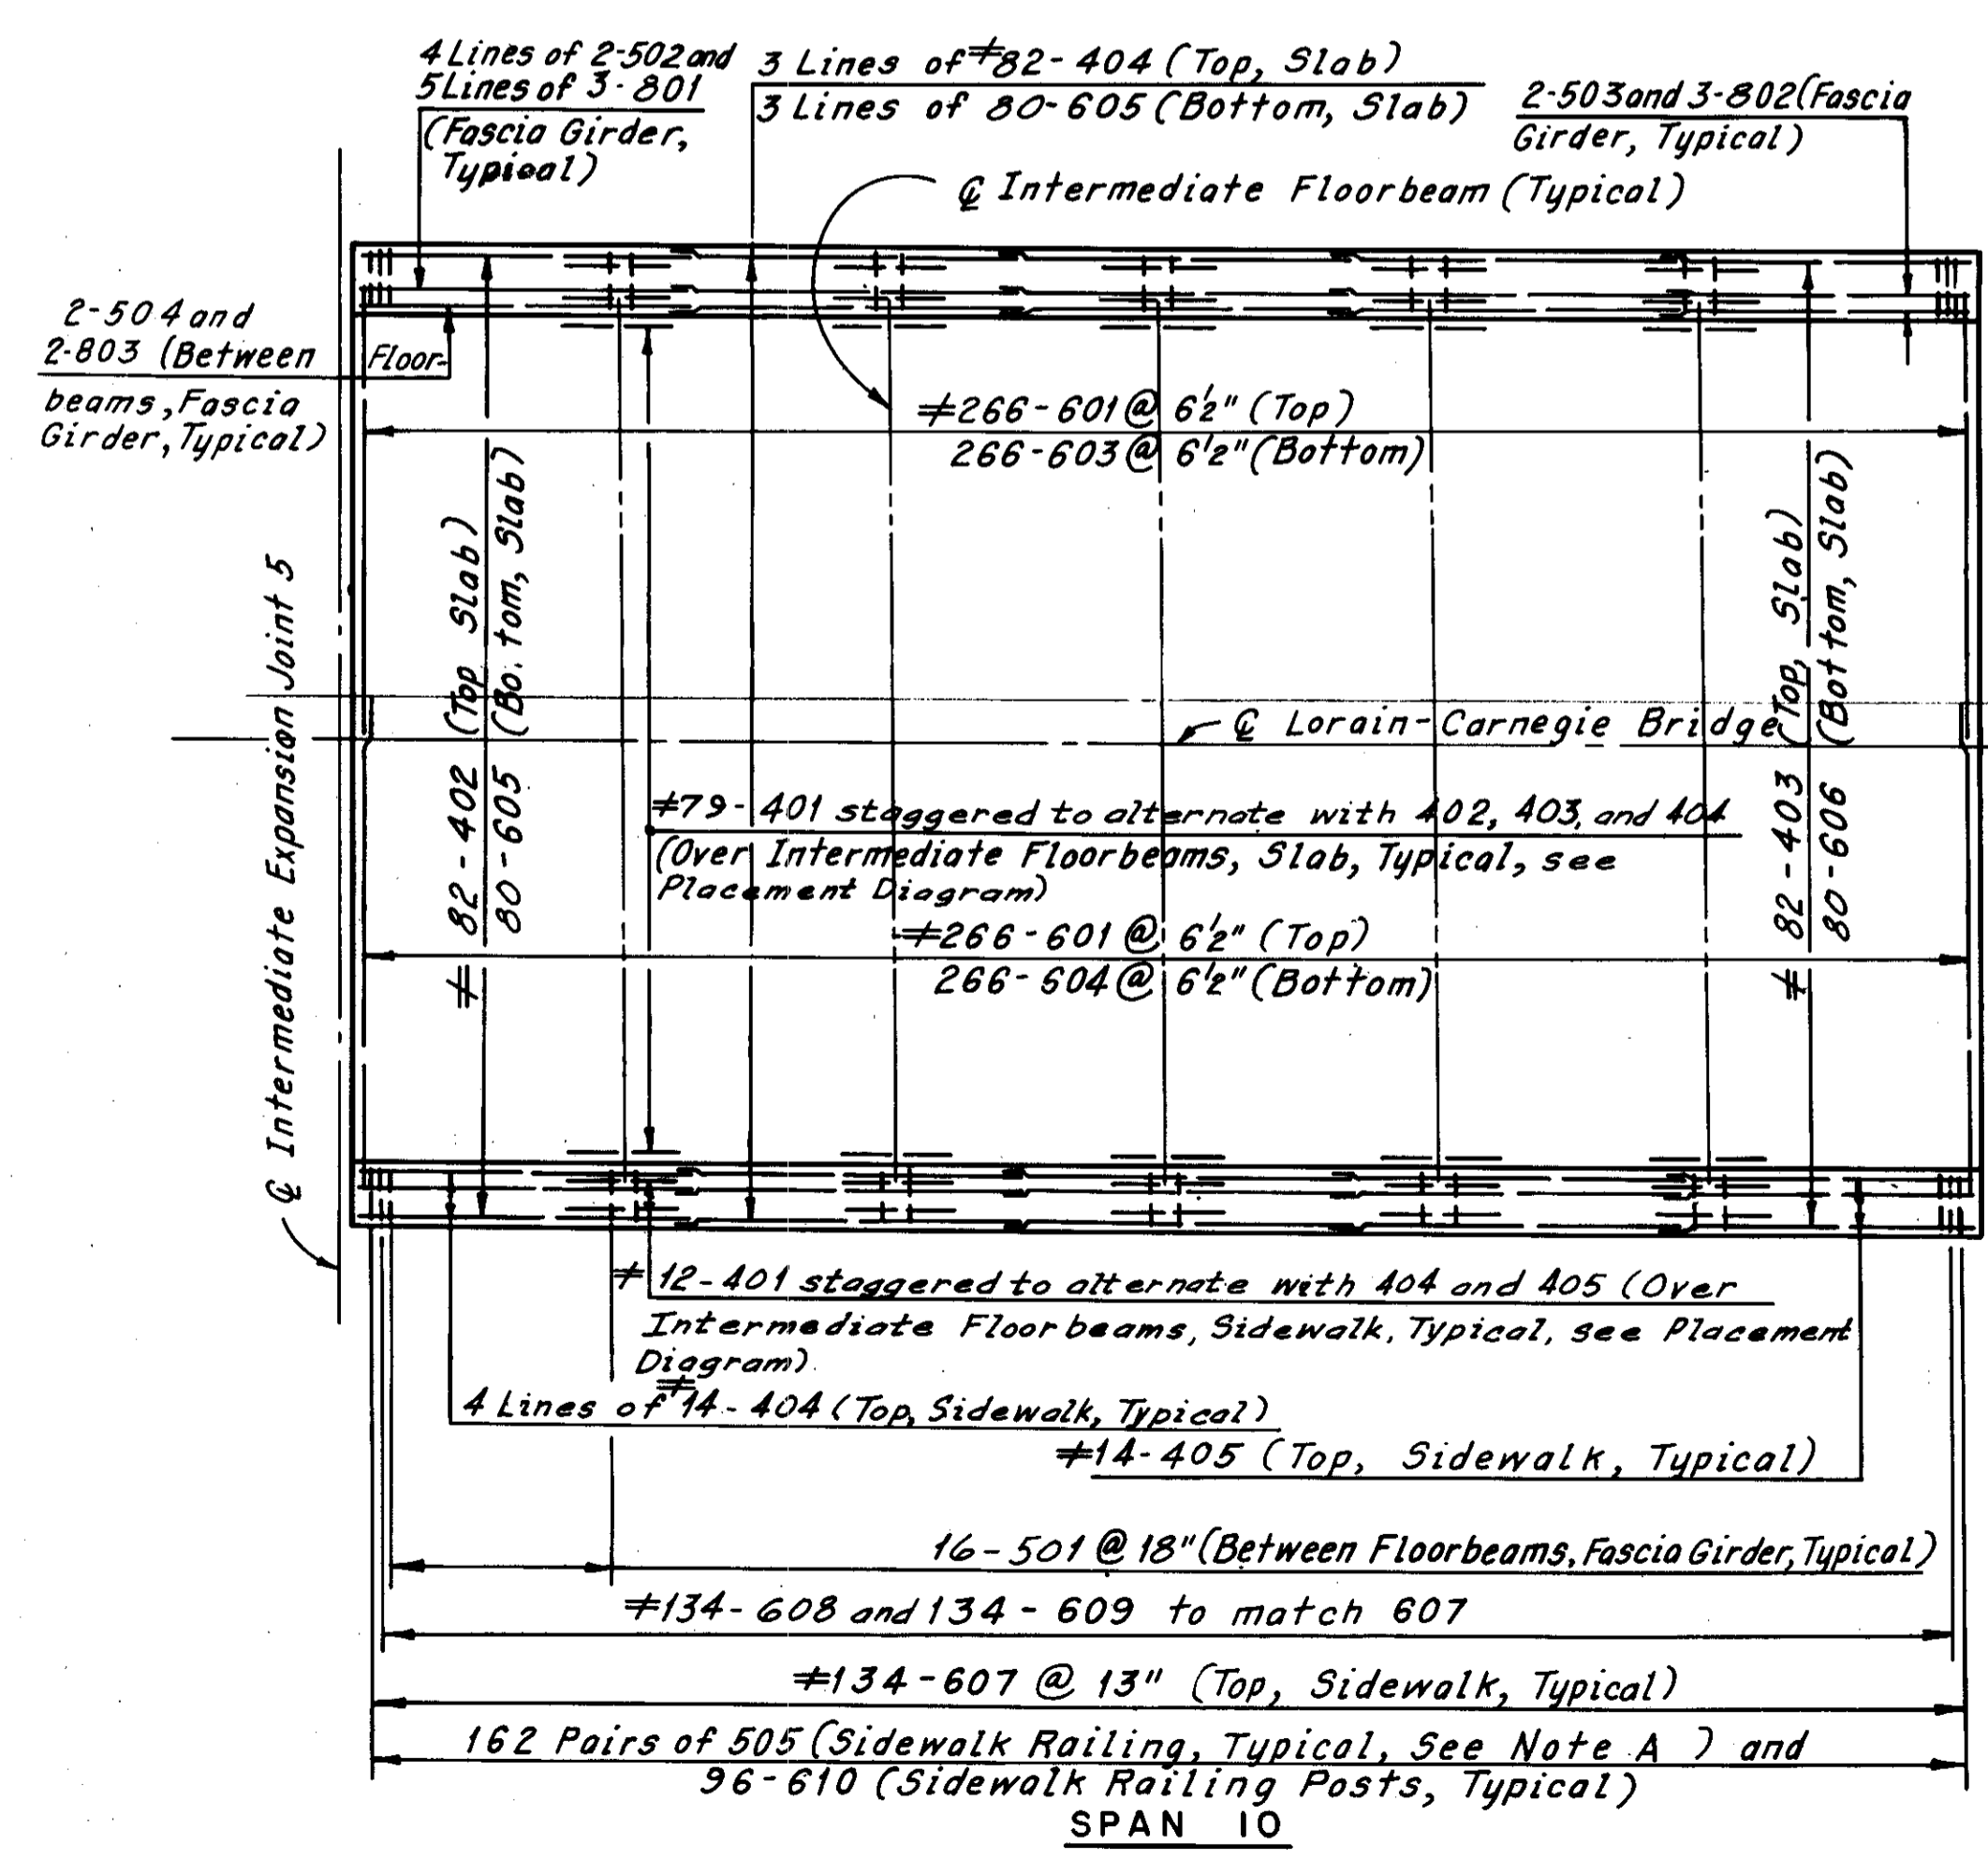 4 Lines of 2-502 and
5 Lines of 3-801
(Fascia Girder,
Typical)
3 Lines of ≠82-404 (Top, Slab)
3 Lines of 80-605 (Bottom, Slab)
2-503 and 3-802 (Fascia
Girder, Typical)
℄ Intermediate Floorbeam (Typical)
2-504 and
2-803 (Between Floor-
beams, Fascia
Girder, Typical)
≠266-601 @ 6½" (Top)
266-603 @ 6½" (Bottom)
℄ Intermediate Expansion Joint 5
≠ 82-402 (Top Slab)
80-605 (Bo.tom, Slab)
≠ 82-403 (Top, Slab)
80-606 (Bottom, Slab)
℄ Lorain-Carnegie Bridge
≠79-401 staggered to alternate with 402, 403, and 404
(Over Intermediate Floorbeams, Slab, Typical, see
Placement Diagram)
≠266-601 @ 6½" (Top)
266-604 @ 6½" (Bottom)
≠ 12-401 staggered to alternate with 404 and 405 (Over
Intermediate Floorbeams, Sidewalk, Typical, see Placement
Diagram)
4 Lines of ≠14-404 (Top, Sidewalk, Typical)
≠14-405 (Top, Sidewalk, Typical)
16-501 @ 18" (Between Floorbeams, Fascia Girder, Typical)
≠134-608 and 134-609 to match 607
≠134-607 @ 13" (Top, Sidewalk, Typical)
162 Pairs of 505 (Sidewalk Railing, Typical, See Note A ) and
96-610 (Sidewalk Railing Posts, Typical)
SPAN 10